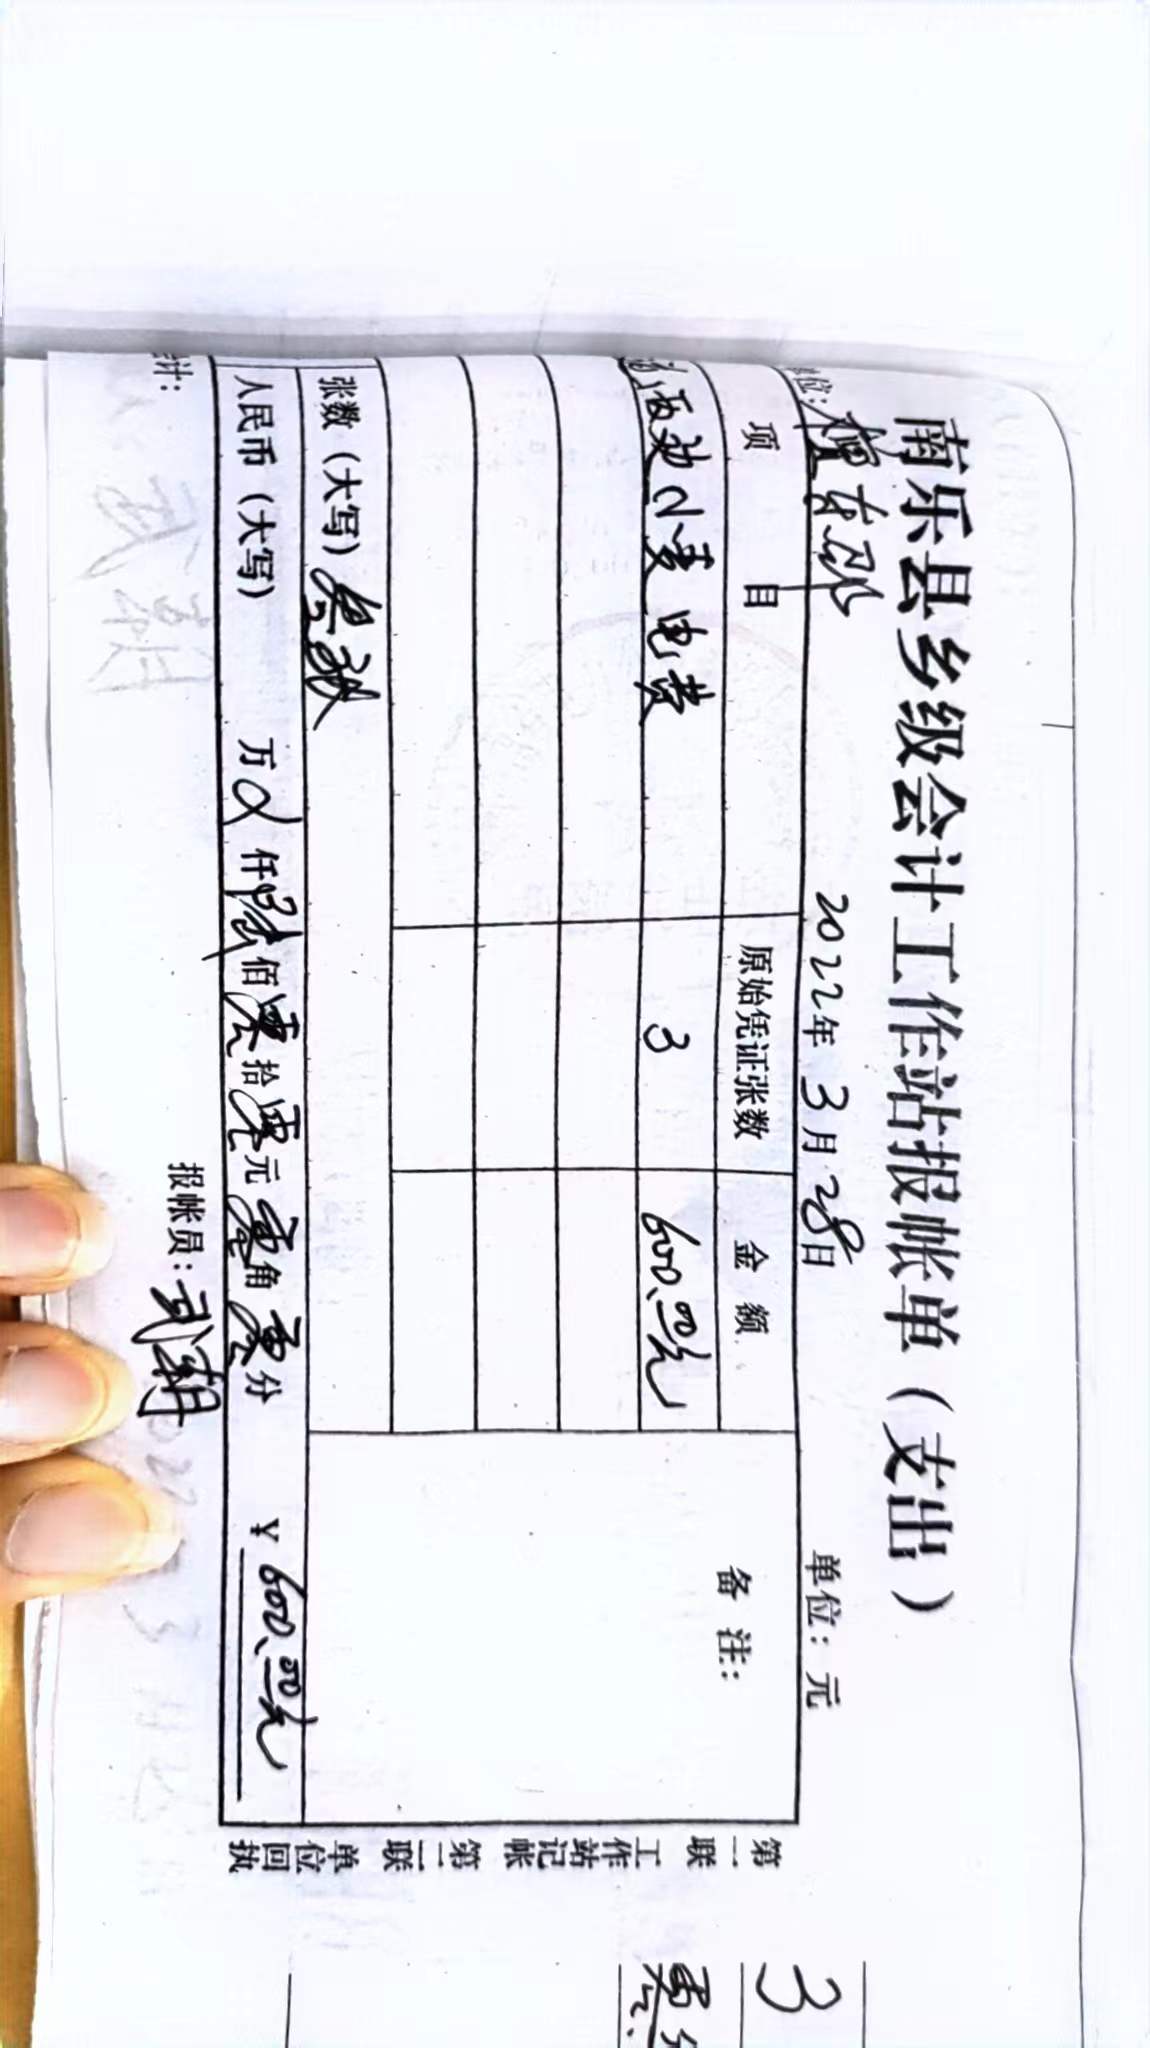 南乐县乡级会计工作站报帐单（支出）
位： 2022年3月28日 单位：元
项目 原始凭证张数 金额 备注：
浇两边小麦电费 3 600.00元
张数（大写）叁张
人民币（大写） 万 仟陆佰零拾零元零角零分 ￥600.00元
计： 报帐员：武朝
第一联 工作站记帐 第二联 单位回执
3